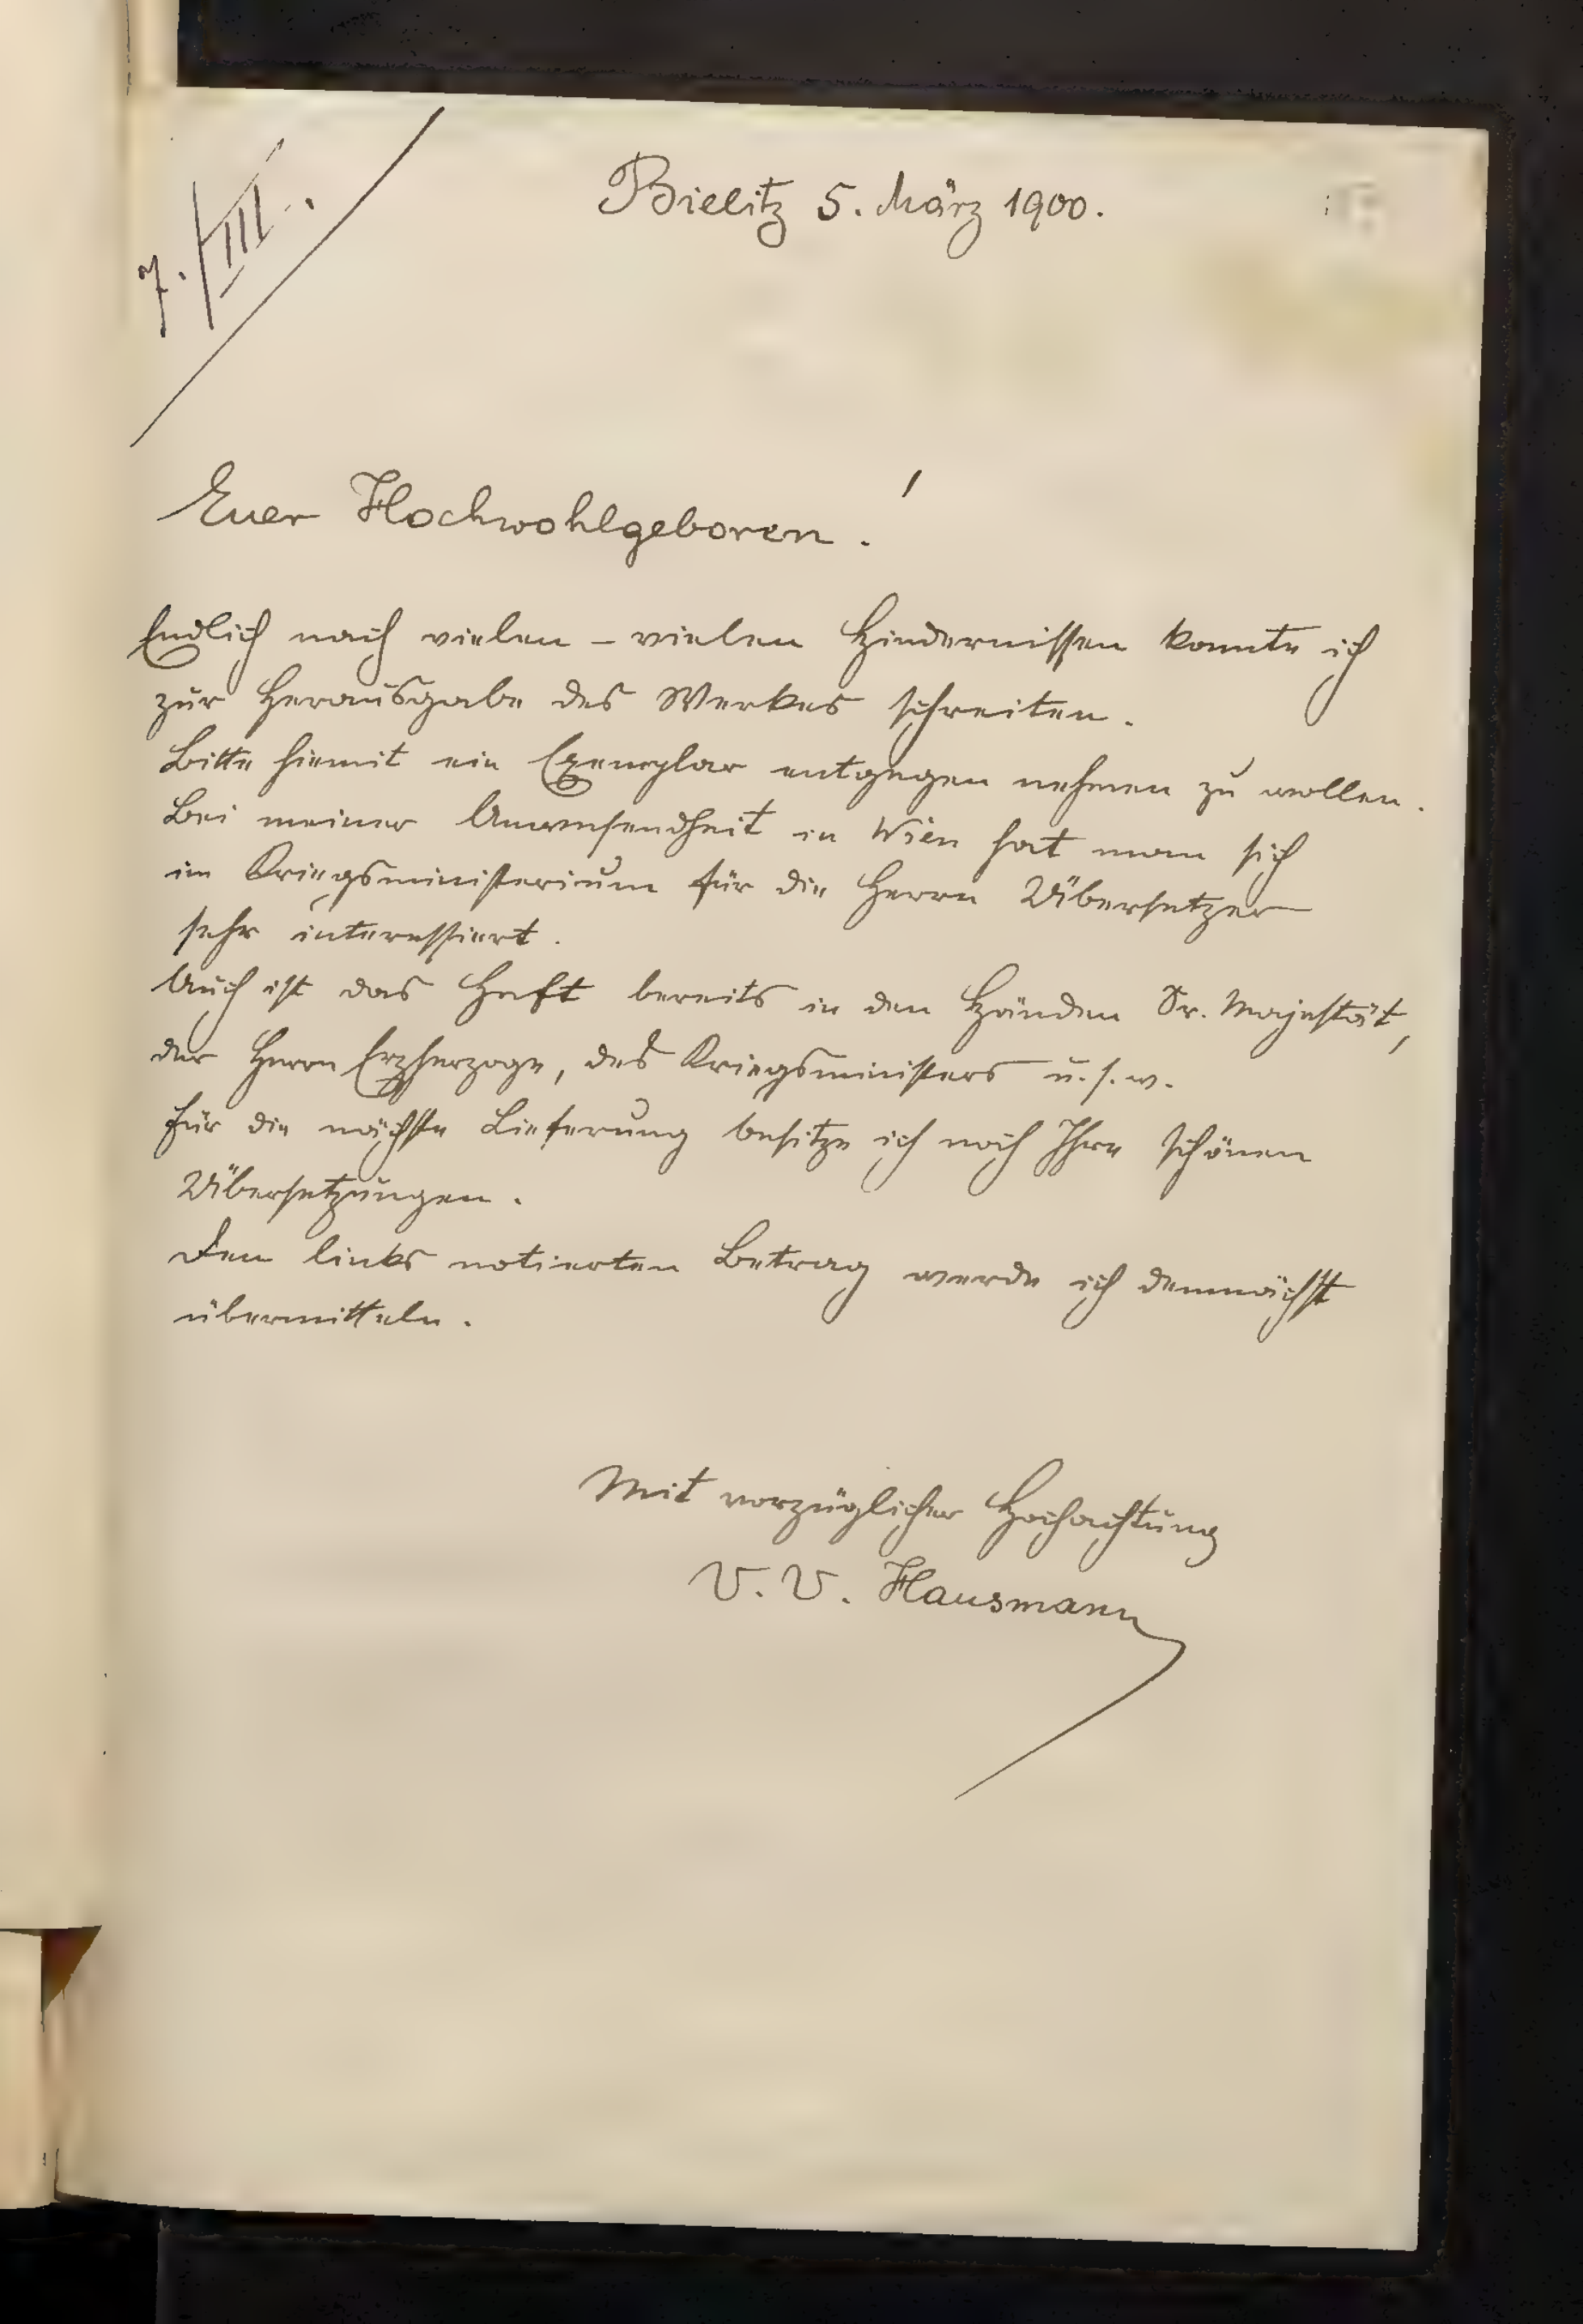 7./III.
Bielitz 5. März 1900.
Euer Hochwohlgeboren!
Endlich nach vielen – vielen Hindernissen konnte ich
zur Herausgabe des Werkes schreiten.
Bitte hiemit ein Exemplar entgegen nehmen zu wollen.
Bei meiner Anwesendheit in Wien hat man sich
im Kriegsministerium für die Herrn Übersetzer
sehr interessiert.
Auch ist das Heft bereits in den Händen Sr. Majestät,
der Herrn Erzherzoge, des Kriegsministers u. s. w.
Für die nächste Lieferung besitze ich noch Ihre schönen
Übersetzungen.
Den links notierten Betrag werde ich demnächst
übermitteln.
Mit vorzüglicher Hochachtung
V. V. Hausmann